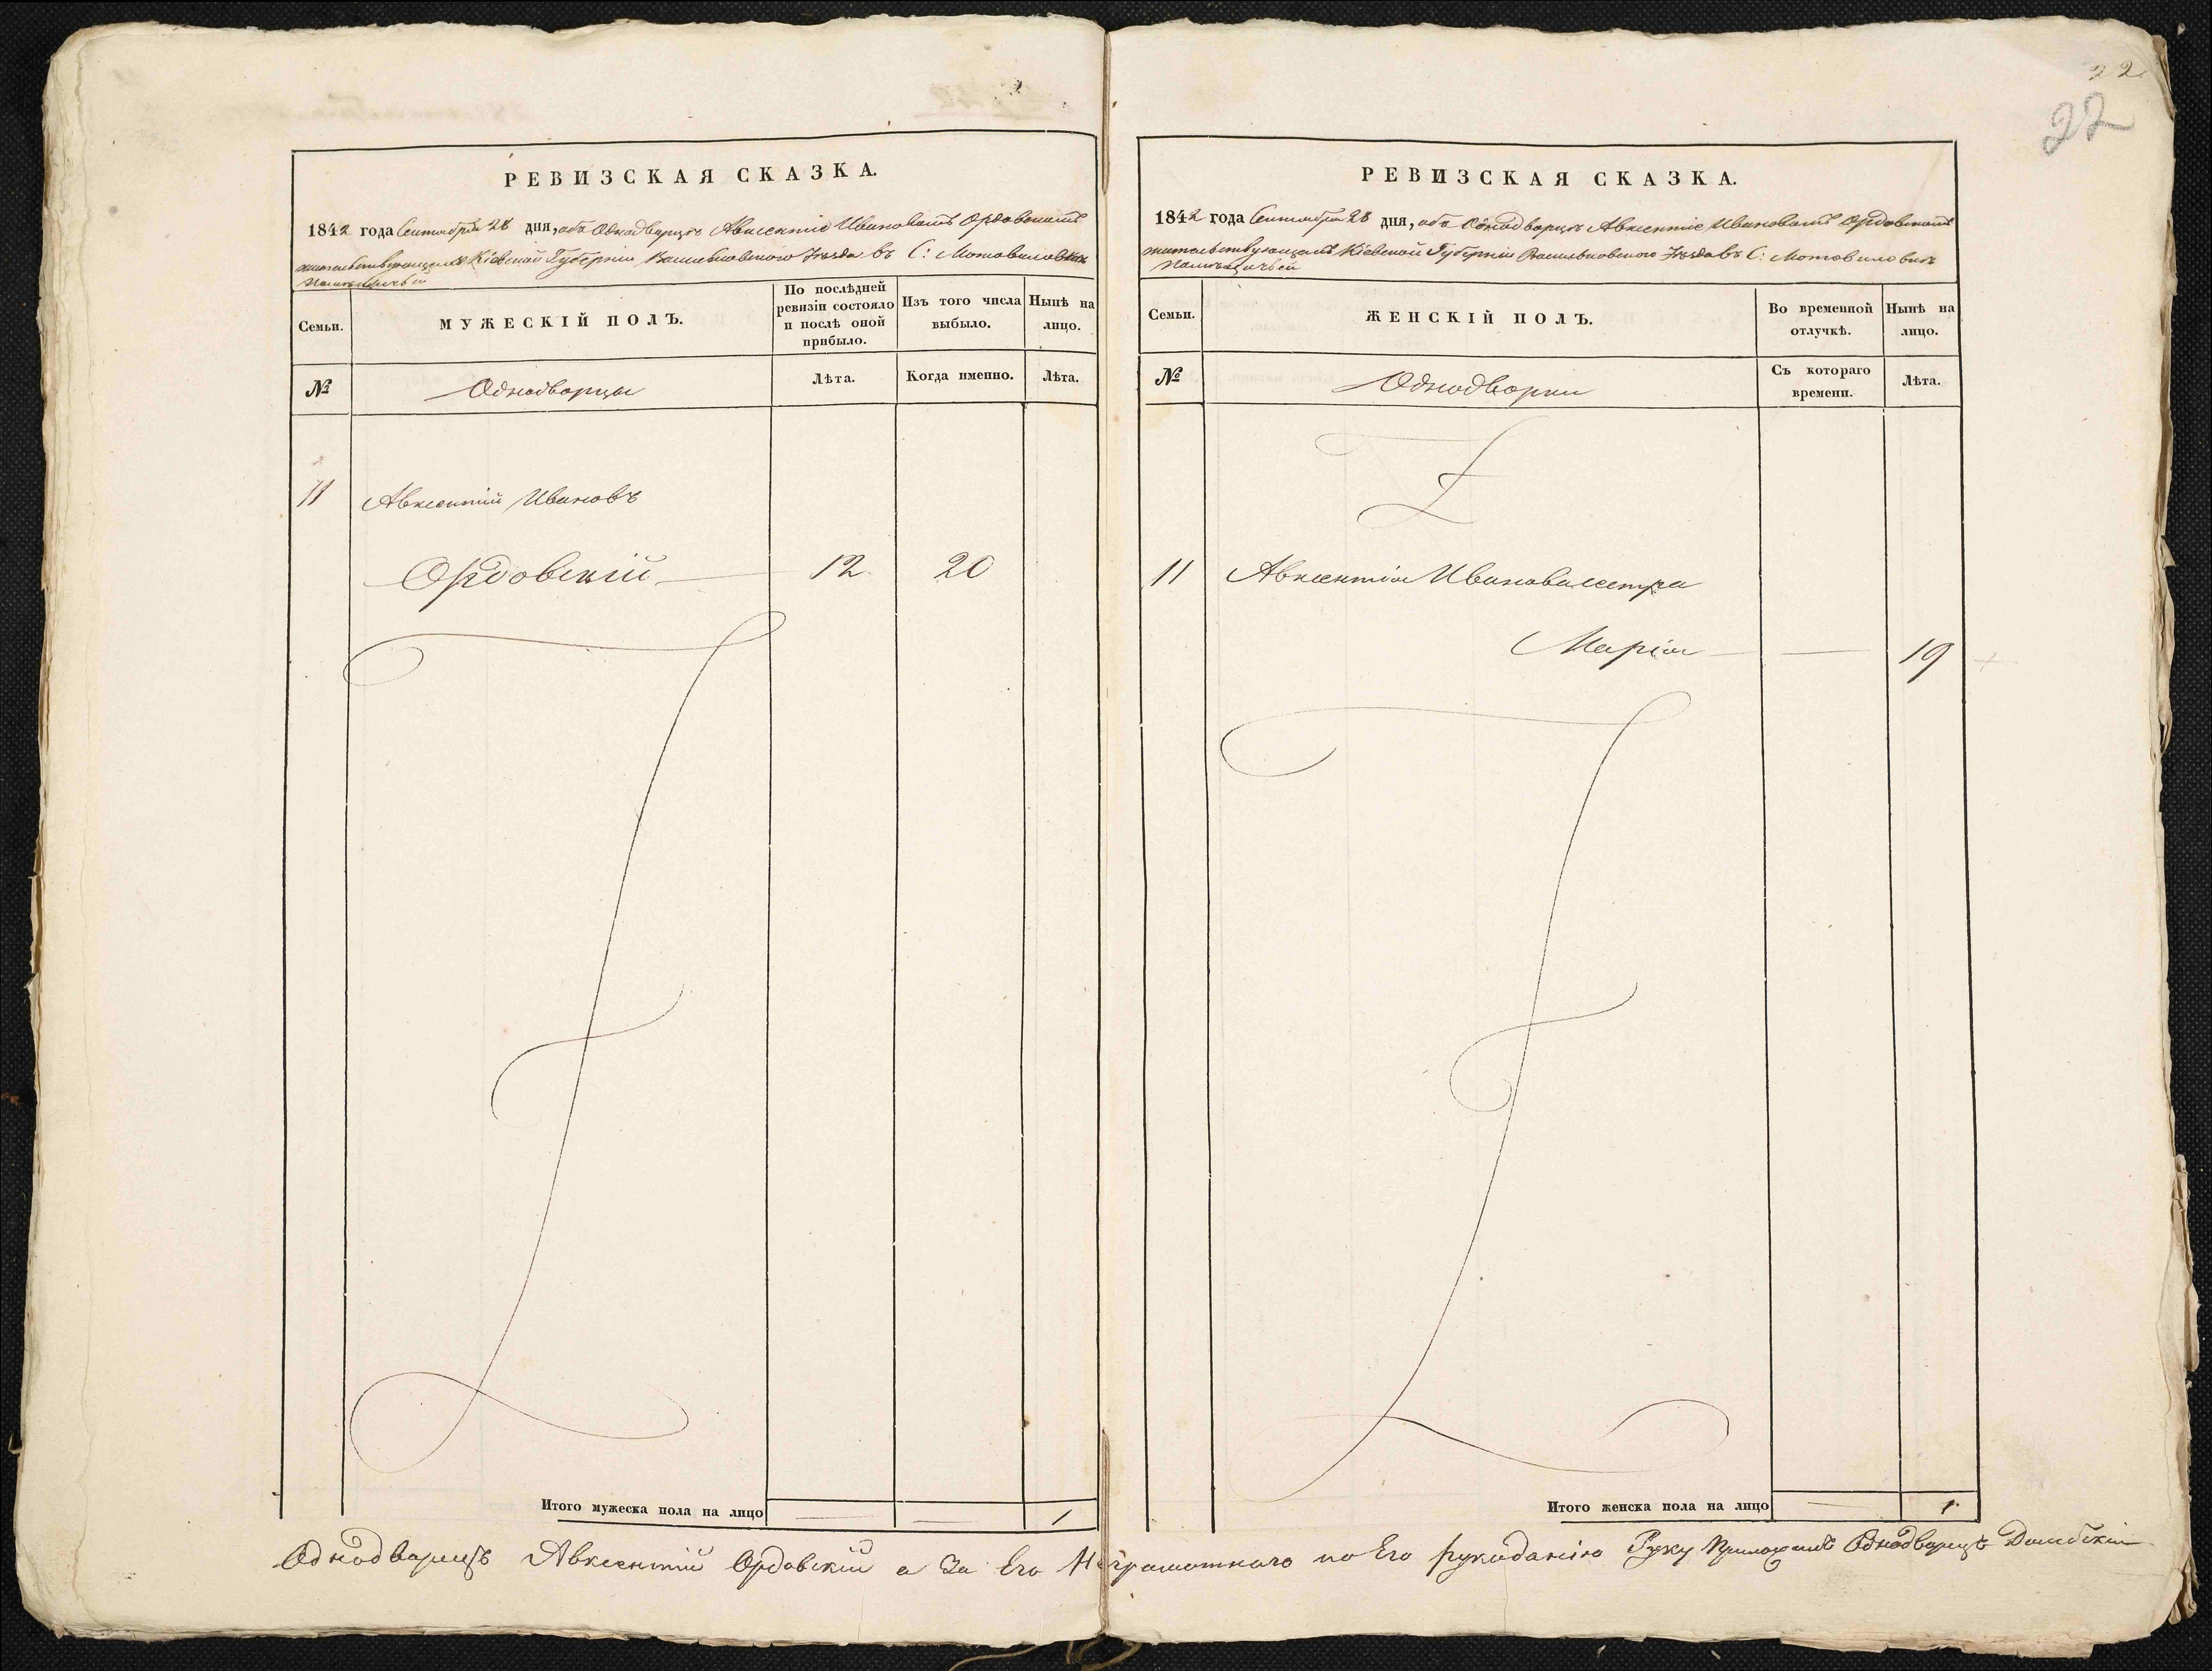 22
22
РЕВИЗСКАЯ СКАЗКА.
1842 года Сентября 28 дня, объ Однодворцѣ Авксентіе Ивановомъ Ордовскомъ
жительствующемъ Кіевской Губерніи Васильковского Уѣзда въ С: Мотовиловкѣ
Семьи.
МУЖЕСКІЙ ПОЛЪ.
По послѣдней ревизіи состояло и послѣ оной прибыло.
Изъ того числа выбыло.
Нынѣ на лицо.
№
Однодворцы
Лѣта.
Когда именно.
Лѣта.
11 Авксентій Ивановъ
Ордовскій 12 20
Итого мужеска пола на лицо 1
РЕВИЗСКАЯ СКАЗКА.
1842 года Сентября 28 дня, объ Однодворцѣ Авксентіе Ивановомъ Ордовскомъ
жительствующемъ Кіевской Губерніи Васильковского Уѣзда въ С: Мотовиловкѣ
Семьи.
ЖЕНСКІЙ ПОЛЪ.
Во временной отлучкѣ.
Нынѣ на лицо.
№
Однодворки
Съ котораго времени.
Лѣта.
11 Авксентія Иванова сестра
Марія 19
Итого женска пола на лицо 1
Однодворецъ Авксентій Ордовскій а За Его Неграмотного по Его рукоданію Руку Приложилъ Однодворецъ